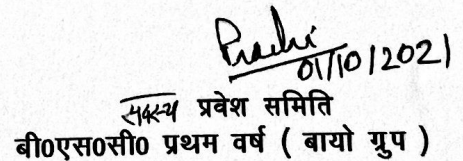 Prachi
01/10/2021
सदस्य प्रवेश समिति
बी०एस०सी० प्रथम वर्ष ( बायो ग्रुप )